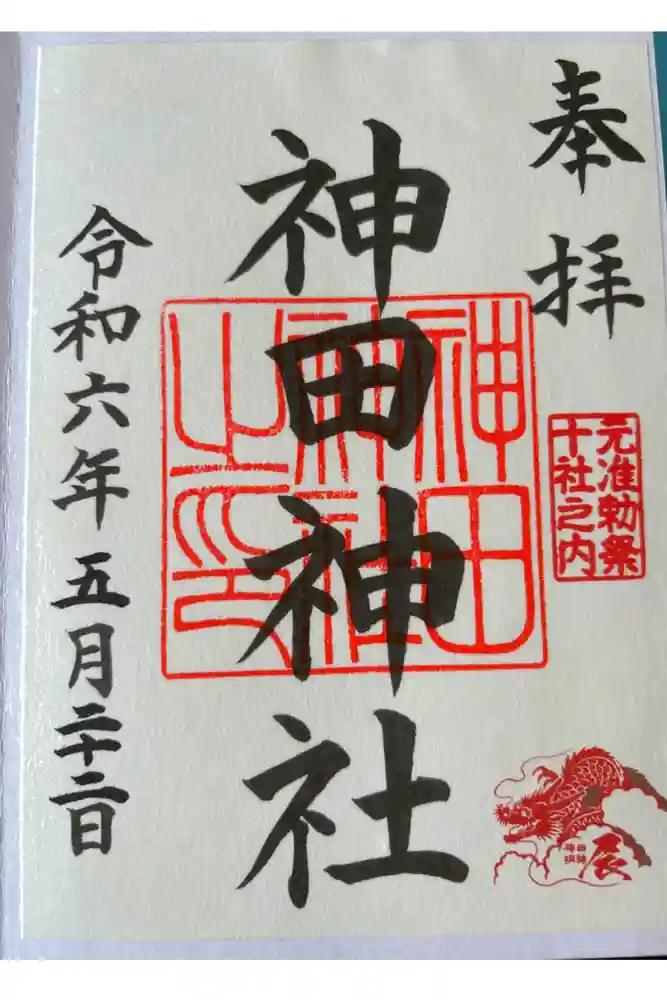 奉拝
元准勅祭
十社之内
神田神社
神田
神社
之印
辰
令和六年五月二十二日